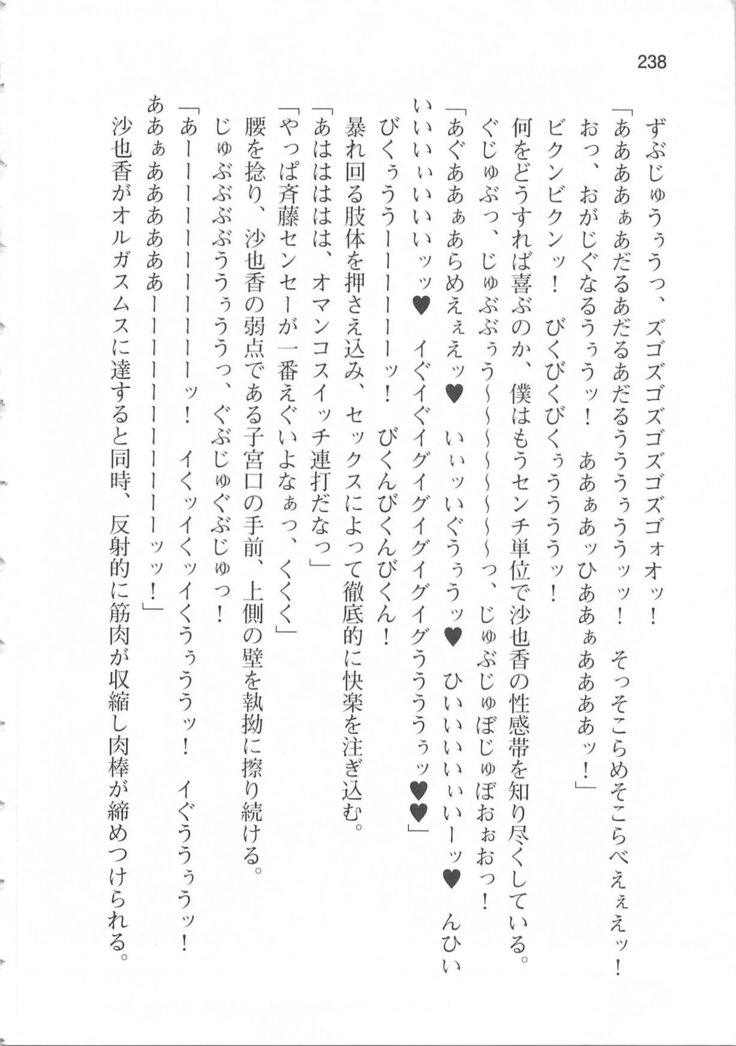 238
ずぶじゅうぅうっ、ズゴズゴズゴズゴズゴォオッ！
「ああああぁあだるあだるあだるうううぅううッッ！　そっそこらめそこらべえぇえッ！
おっ、おがじぐなるうぅうッ！　ああぁあッひああぁああああッ！」
ビクンビクンッ！　びくびくびくぅううううッ！
何をどうすれば喜ぶのか、僕はもうセンチ単位で沙也香の性感帯を知り尽くしている。
ぐじゅぶっ、じゅぶぶぅう〜〜〜〜〜〜っ、じゅぶじゅぼじゅぼおぉおっ！
「あぐああぁあらめえぇえッ♥　いぃッいぐうぅうッ♥　ひいいいいぃいーッ♥　んひい
いいいいぃいいいッッ♥　イぐイぐイグイグイグイグイグううううぅッ♥♥」
びくぅううーーーーーッ！　びくんびくんびくん！
暴れ回る肢体を押さえ込み、セックスによって徹底的に快楽を注ぎ込む。
「あはははははは、オマンコスイッチ連打だなっ」
「やっぱ斉藤センセーが一番えぐいよなぁっ、くくく」
腰を捻り、沙也香の弱点である子宮口の手前、上側の壁を執拗に擦り続ける。
じゅぶぶぶぶううぅううっ、ぐぶじゅぐぶじゅっ！
「あーーーーーーーーーーーッ！　イくッイくッイくうぅううッ！　イぐううぅうッ！
ああぁあああああああーーーーーーーーーーッッ！」
沙也香がオルガスムスに達すると同時、反射的に筋肉が収縮し肉棒が締めつけられる。